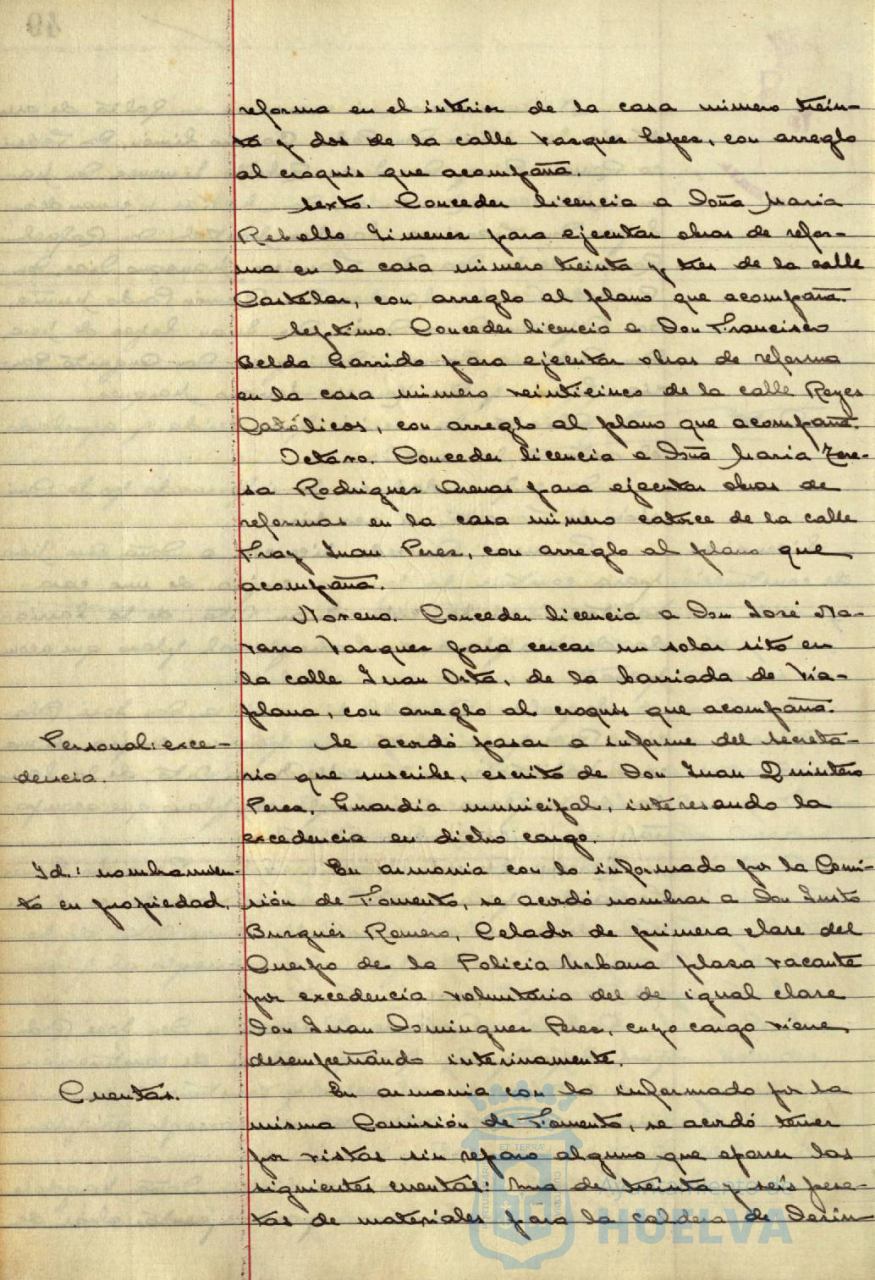 reforma en el interior de la casa número trein-
ta y dos de la calle Vasquez Lopez, con arreglo
al croquis que acompaña.
Sexto. Conceder licencia a Doña Maria
Rebollo Gimenez para ejecutar obras de refor-
ma en la casa número treinta y tres de la calle
Castelar, con arreglo al plano que acompaña.
Septimo. Conceder licencia a Don Francisco
Belda Garrido para ejecutar obras de reforma
en la casa número veinticinco de la calle Reyes
Católicos, con arreglo al plano que acompaña.
Octavo. Conceder licencia a Doña Maria Tere-
sa Rodriguez Arenas para ejecutar obras de
reformas en la casa número catorce de la calle
Fray Juan Perez, con arreglo al plano que
acompaña.
Noveno. Conceder licencia a Don José Na-
varro Vasquez para cercar un solar sito en
la calle Juan Orta, de la barriada de Via-
plana, con arreglo al croquis que acompaña.
Personal: exce-
dencia.
Se acordó pasar a informe del Secreta-
rio que suscribe, escrito de Don Juan Quintero
Perea, Guardia municipal, interesando la
excedencia en dicho cargo.
Id.: nombramien-
to en propiedad.
En armonia con lo informado por la Comi-
sión de Fomento, se acordó nombrar a Don Justo
Burgués Romero, Celador de primera clase del
Cuerpo de la Policia Urbana plaza vacante
por excedencia voluntaria del de igual clase
Don Juan Dominguez Perez, cuyo cargo viene
desempeñando interinamente.
Cuentas.
En armonia con lo informado por la
misma Comisión de Fomento, se acordó tener
por vistas sin reparo alguno que oponer las
siguientes cuentas: Una de treinta y seis pese-
tas de materiales para la caldera de Desin-
HUELVA